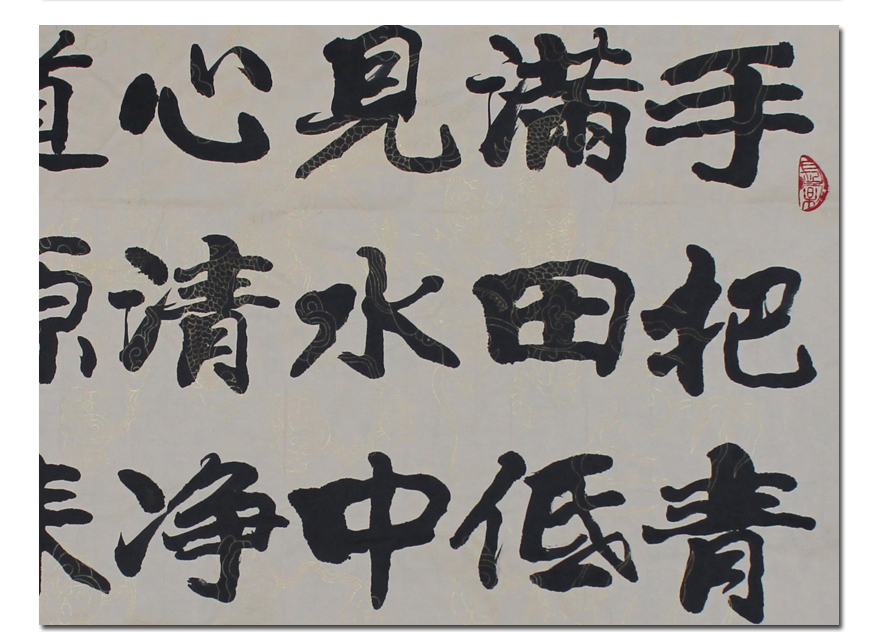 手把青
满田低
見水中
心清净